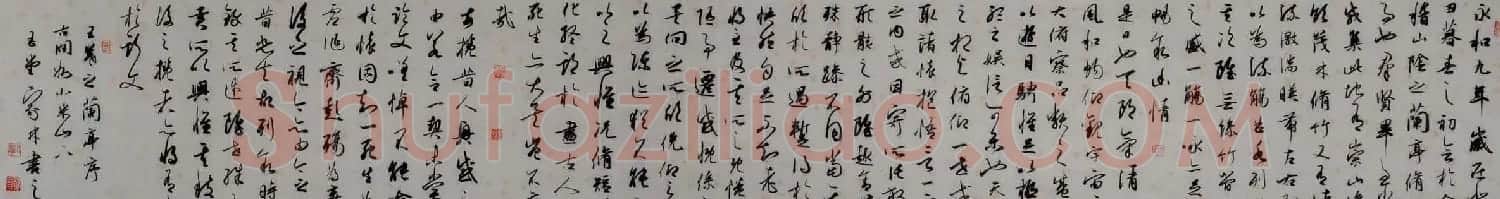 永和九年歲在
丑暮春之初會於會
稽山陰之蘭亭脩
事也群賢畢至少
咸集此地有崇山
領茂林脩竹又有清
流激湍暎帶左右
以為流觴曲水列
其次雖無絲竹管
之盛一觴一詠亦足
暢敘幽情
是日也天朗氣清
風和暢仰觀宇宙
大俯察品類之盛
以遊目騁懷足以極
聽之娛信可樂也夫
之相與俯仰一世或
取諸懷抱悟言一
之內或因寄所託放
形骸之外雖趣舍
殊靜躁不同當其
欣於所遇暫得於
快然自足不知老
將至及其所之既惓
隨事遷感慨係
矣向之所欣俛仰之
以為陳迹猶不能
以之興懷況脩短
化終期於盡古人
死生亦大矣豈不
哉
每攬昔人興感
由若合一契未嘗
臨文嗟悼不能喻
於懷固知一死生為
虛誕齊彭殤為妄
後之視今亦由今之
昔悲夫故列敘時
錄其所述雖世殊
異所以興懷其致
後之攬者亦將有
於斯文
王羲之蘭亭序
書之
Shufaziliao.COM